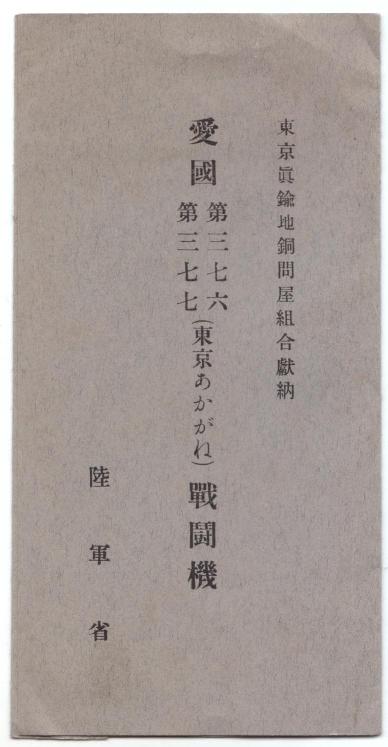 東京眞鍮地銅問屋組合獻納
愛國第三七六第三七七(東京あかがね)戰鬪機
陸軍省